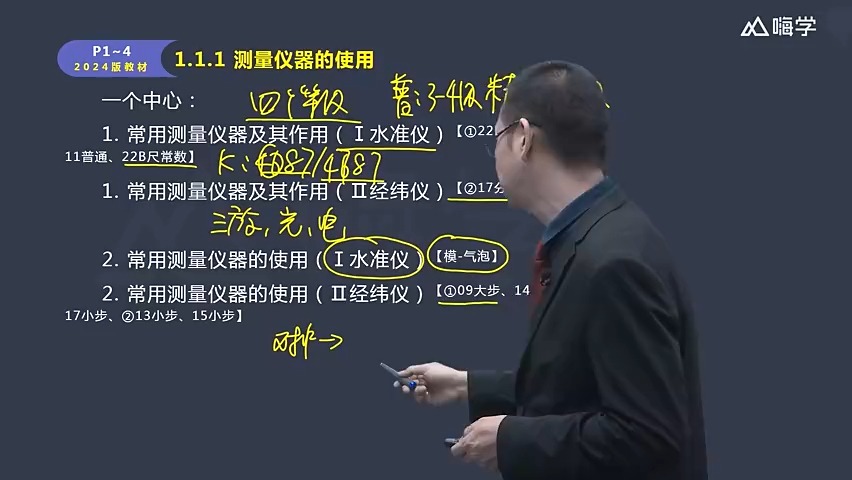 P1~4
2024版教材
1.1.1 测量仪器的使用
嗨学
一个中心：
四个等级
普：3-4级
1. 常用测量仪器及其作用（Ⅰ水准仪）【①22
11普通、22B尺常数】
K：4687/4787
1. 常用测量仪器及其作用（Ⅱ经纬仪）【②17
光、电
2. 常用测量仪器的使用（Ⅰ水准仪）【模-气泡】
2. 常用测量仪器的使用（Ⅱ经纬仪）【①09大步、14
17小步、②13小步、15小步】
对中→